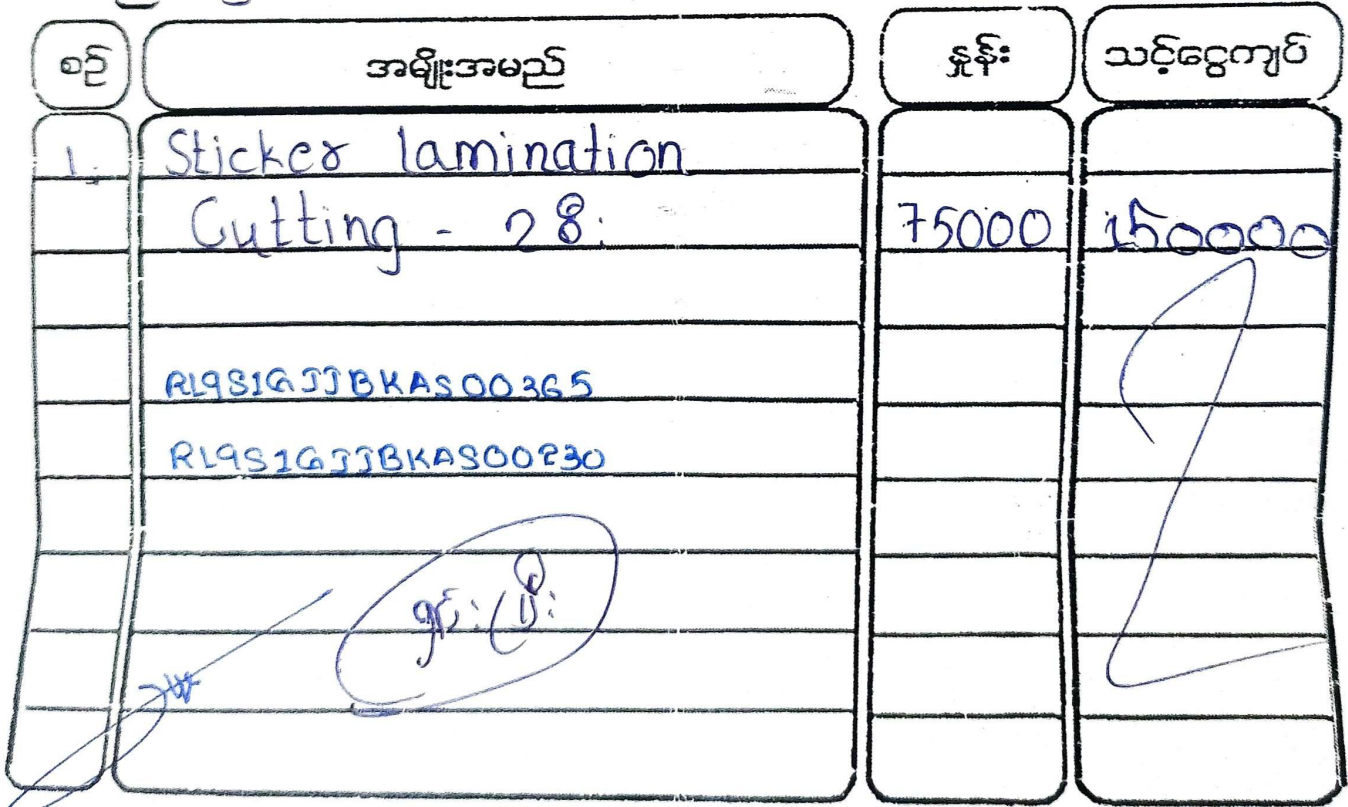 စဉ် အမျိုးအမည် နှုန်း သင့်ငွေကျပ်
1. Sticker lamination
Cutting - ၁စီး 75000 150000
RL9S1GJJBKAS00365
RL9S1GJJBKAS00230
ရှင်းပြီး